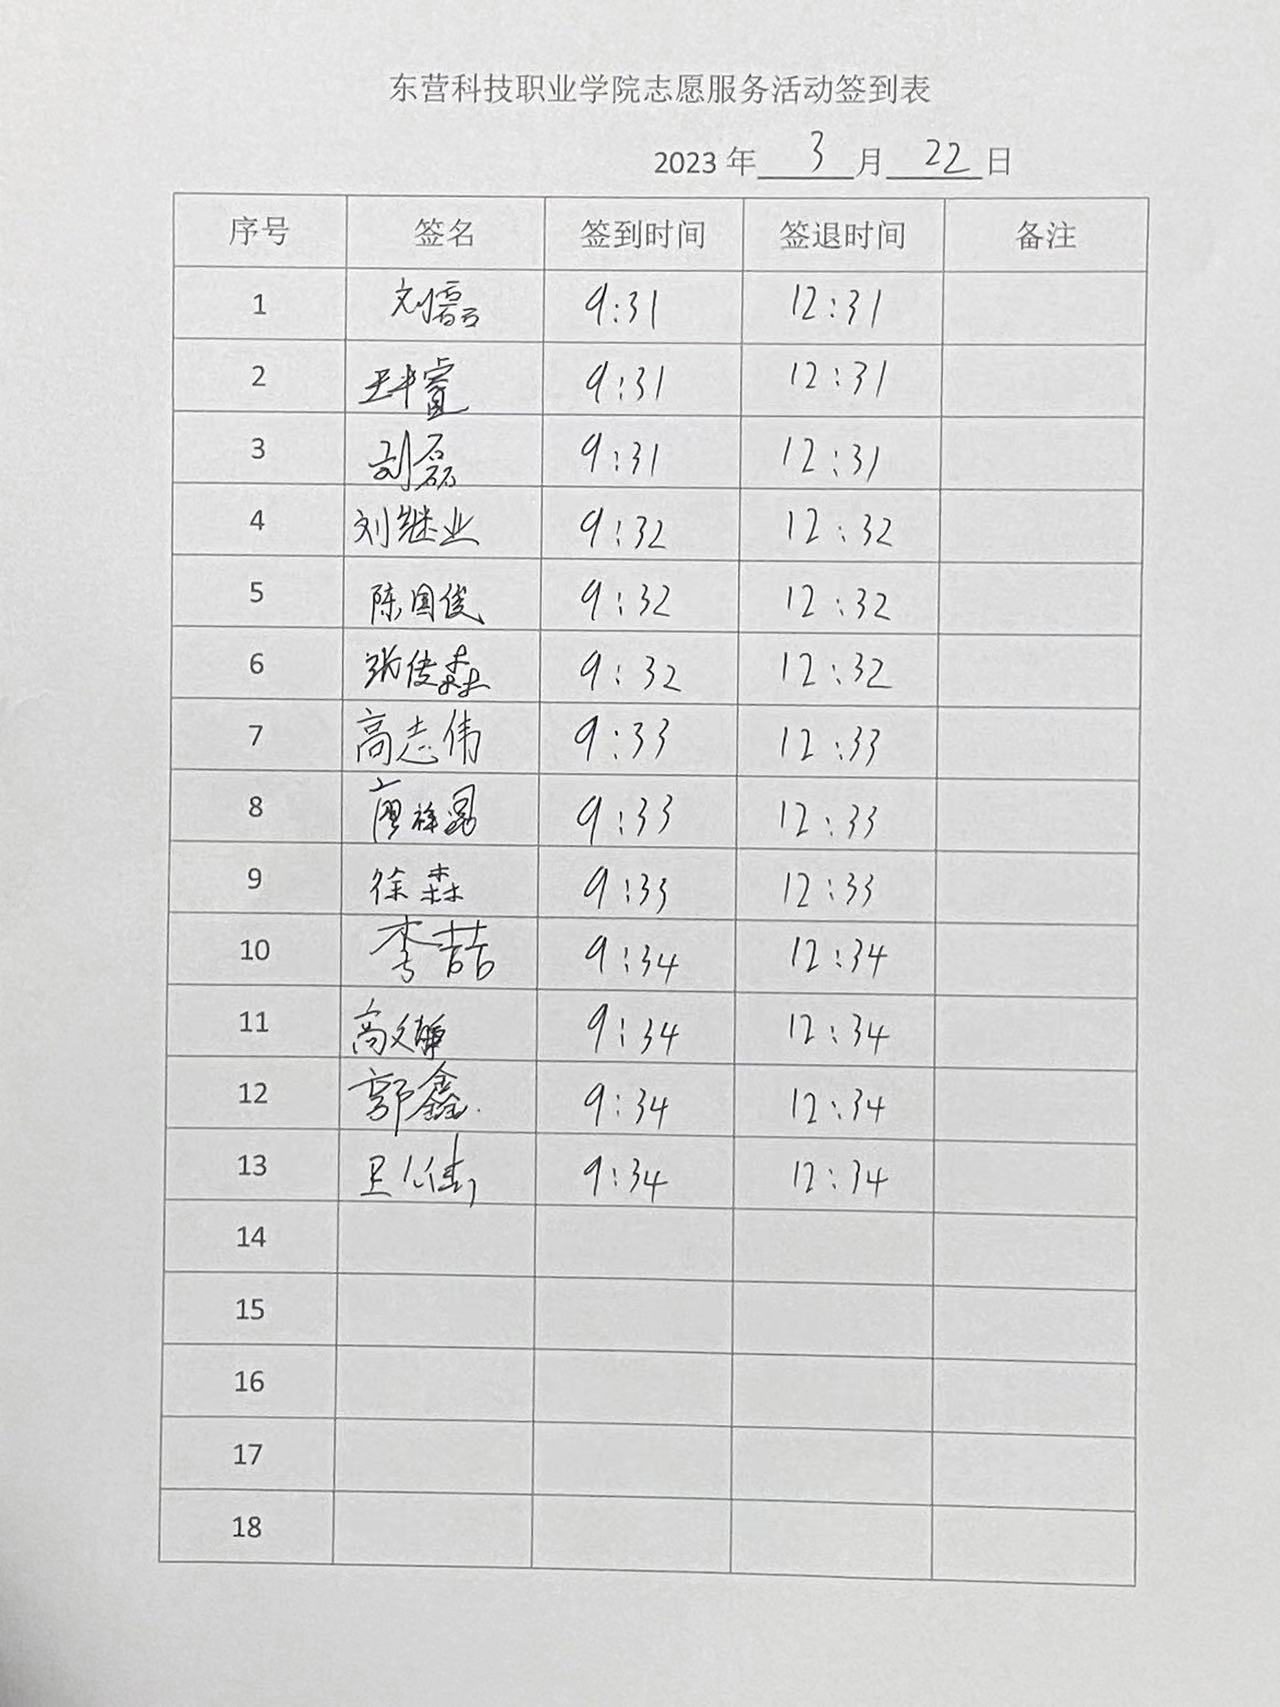 东营科技职业学院志愿服务活动签到表
2023 年 3 月 22 日
序号 签名 签到时间 签退时间 备注
1 刘磊 9:31 12:31
2 9:31 12:31
3 刘磊 9:31 12:31
4 刘继业 9:32 12:32
5 陈国俊 9:32 12:32
6 张俊森 9:32 12:32
7 高志伟 9:33 12:33
8 廖祥 9:33 12:33
9 徐森 9:33 12:33
10 李喆 9:34 12:34
11 高文 9:34 12:34
12 郭鑫 9:34 12:34
13 9:34 12:34
14
15
16
17
18